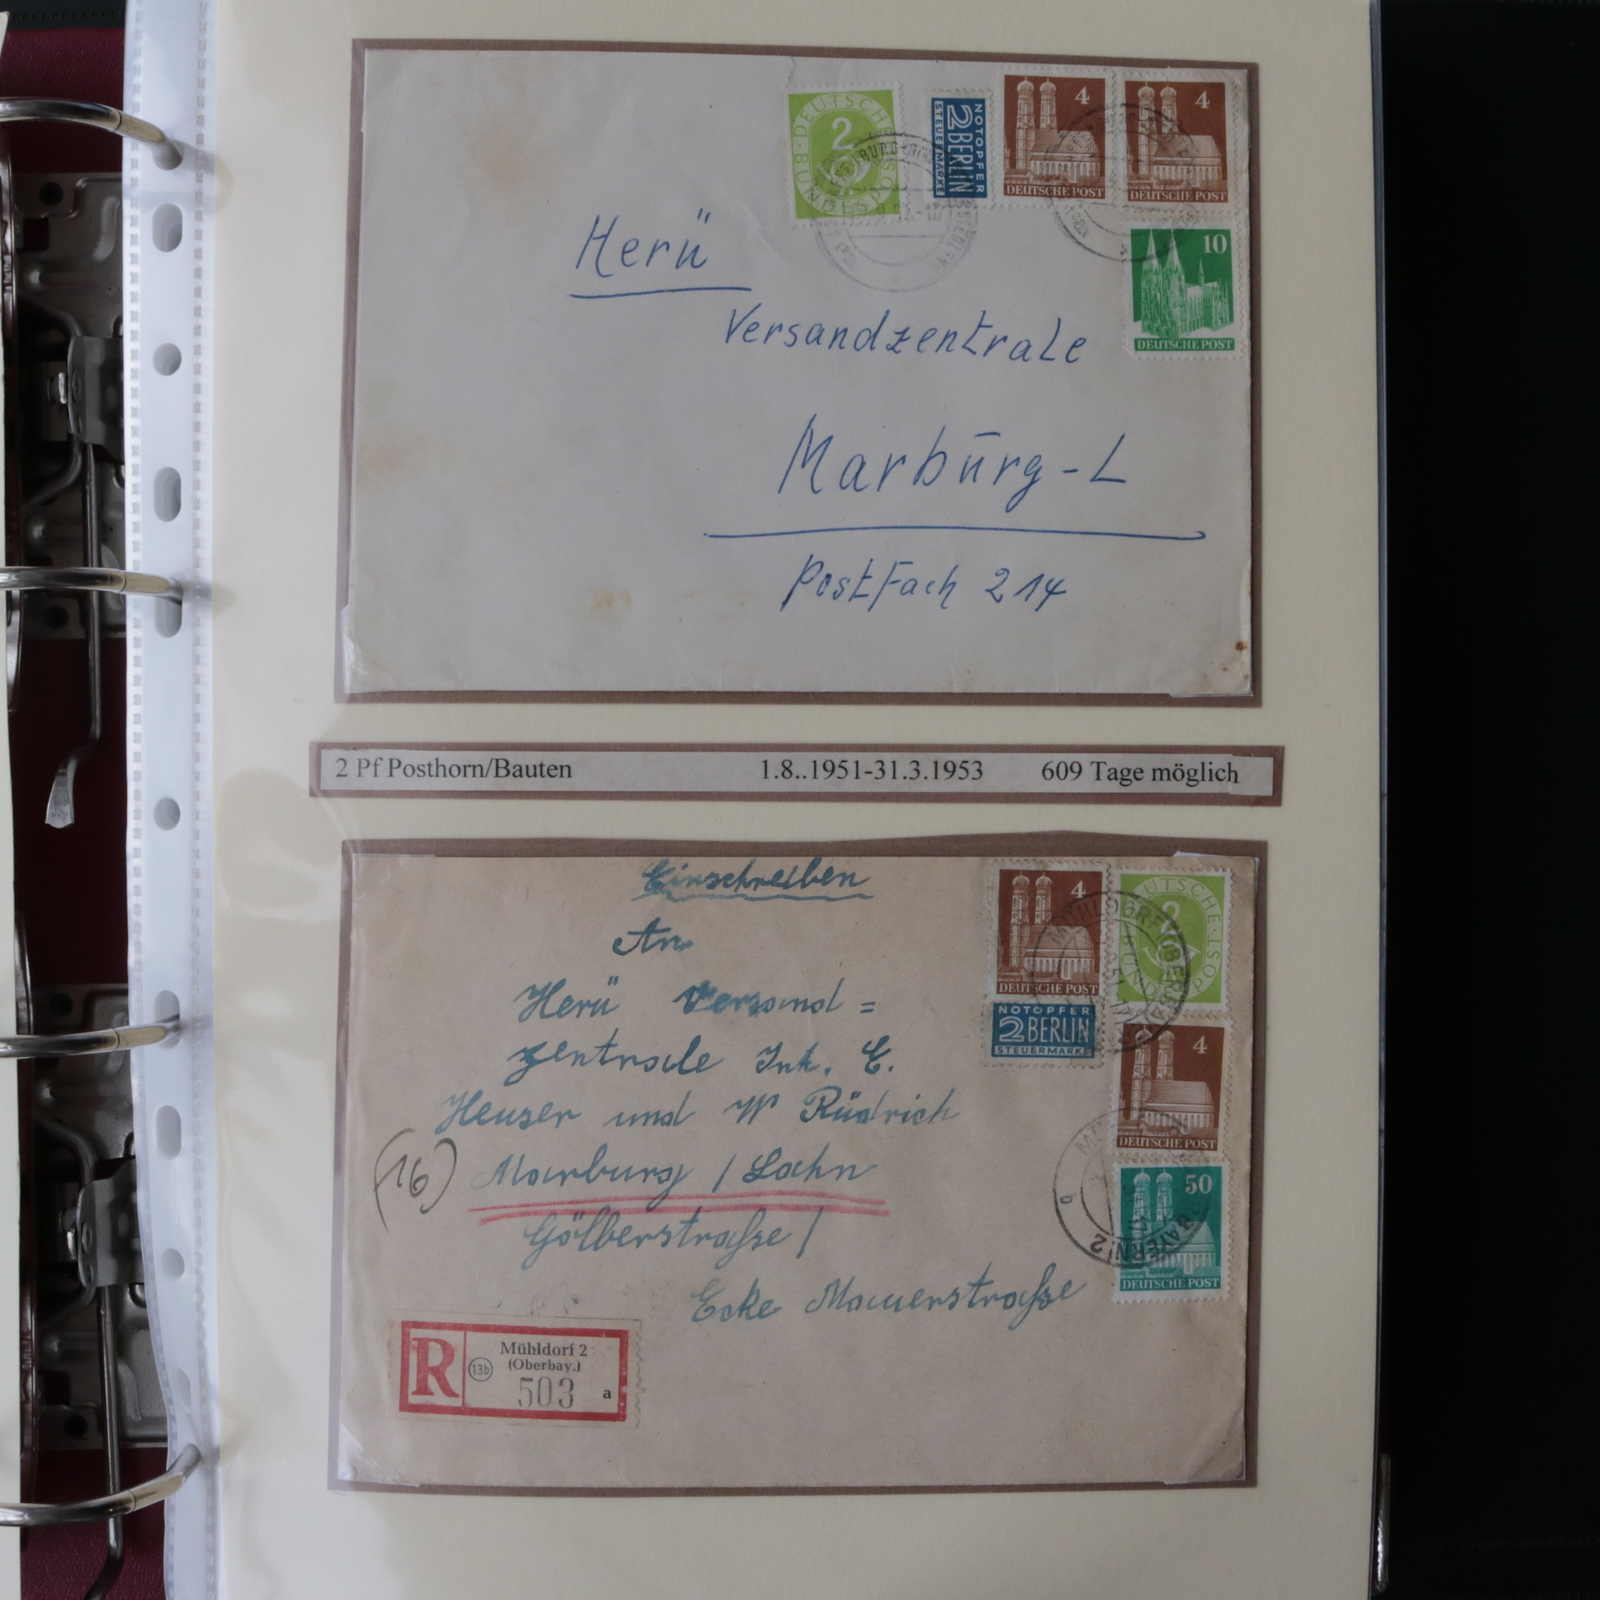 DEUTSCHE
2
BUNDESPOST
NOTOPFER
2 BERLIN
STEUERMARKE
4
DEUTSCHE POST
4
DEUTSCHE POST
10
DEUTSCHE POST
Herü
Versandzentrale
Marburg-L
Postfach 214
2 Pf Posthorn/Bauten 1.8..1951-31.3.1953 609 Tage möglich
Einschreiben
An
Herü Versand =
zentrale Ink. E.
Heuser und W Rüdrich
(16) Marburg / Lahn
Gölberstraße /
Ecke Mauerstraße
4
DEUTSCHE POST
2
NOTOPFER
2 BERLIN
STEUERMARKE
MÜHLDORF
4
DEUTSCHE POST
50
DEUTSCHE POST
R
13b
Mühldorf 2
(Oberbay.)
503 a